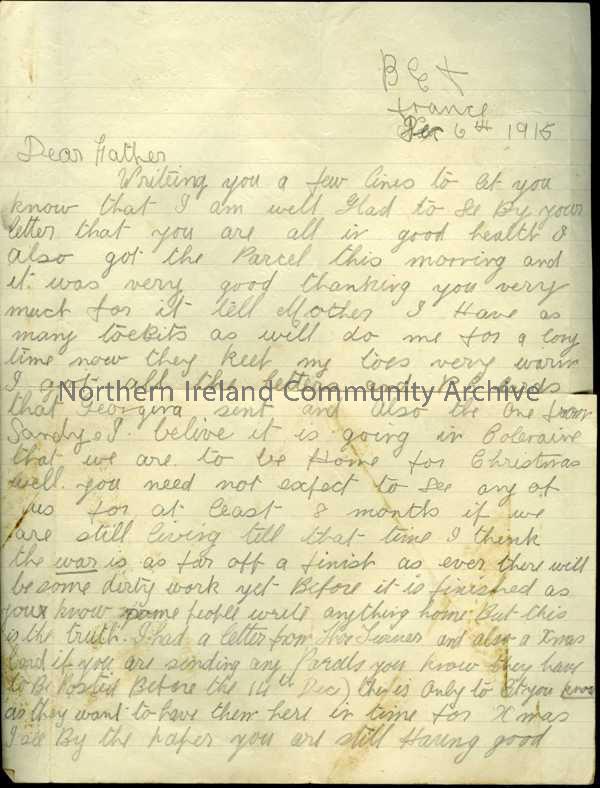 B E F
France
Dec 6th 1915
Dear Father
Writeing you a few lines to let you
know that I am well Glad to See By your
letter that you are all in good health I
also got the Parcel this morning and
it was very good thanking you very
much for it tell Mother I Have as
many as will do me for a long
time now they keet my toes very warm
I got all the letters and P.Cards
Northern Ireland Community Archive
that Georgina sent and Also the One from
Sandy. I belive it is going in Coleraine
that we are to be Home for Christmas
well you need not expect to See any of
us for at least 8 months if we
are still living till that time I thenk
the war is as far off a finish as ever there will
be some dirty work yet Before it is finished as
you know some people write anything home But this
is the truth. I had a letter from and also a Xmas
Card if you are sending any Parcels you know they have
to Be Posted Before the 14th Dec) this is Only to let you know
as they want to have them here in time for Xmas
I see By the paper you are still Having good